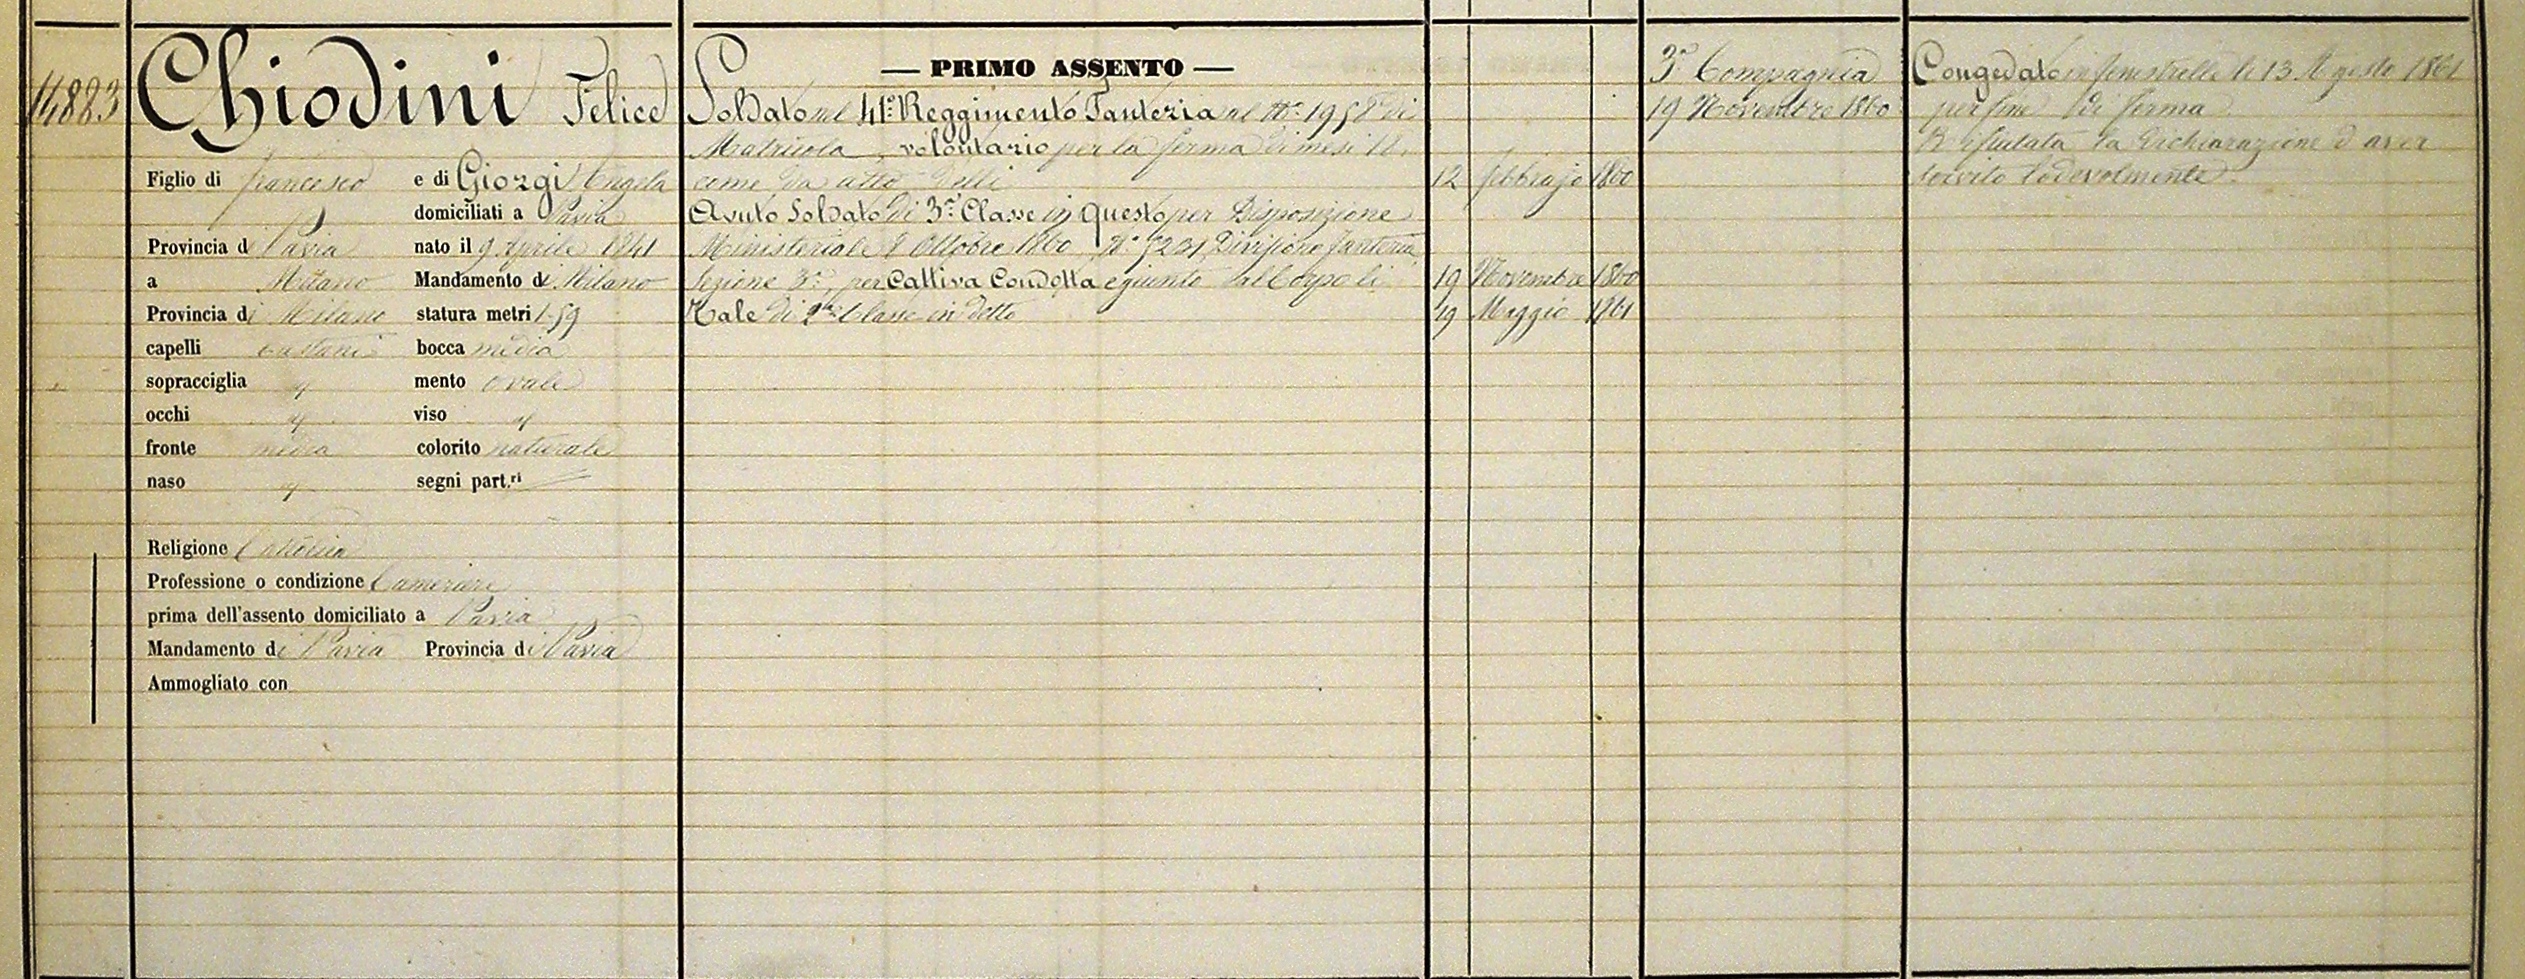 14883
Chiodini Felice
Figlio di Francesco e di Giorgi Angela
domiciliati a Pavia
Provincia di Pavia nato il 9 Aprile 1841
a Milano Mandamento di Milano
Provincia di Milano statura metri 1-59
capelli castani bocca media
sopracciglia " mento ovale
occhi " viso "
fronte media colorito naturale
naso " segni part.ri
Religione Cattolica
Professione o condizione Cameriere
prima dell'assento domiciliato a Pavia
Mandamento di Pavia Provincia di Pavia
Ammogliato con
— PRIMO ASSENTO —
Soldato nel 41º Reggimento Fanteria al Nº 1958 di
Matricola, volontario per la ferma di mesi 18,
come da atto delli 12 febbrajo 1860
Avuto Soldato di 3ª Classe in questo per Disposizione
Ministeriale 8 Ottobre 1860 Nº 5231 Divisione fanteria
Sezione 3ª, per Cattiva Condotta e giunto al Corpo li 19 Novembre 1860
Tale di 2ª Classe in detto 19 Maggio 1861
3ª Compagnia
19 Novembre 1860
Congedato in fenestrelle li 13 Agosto 1861
per fine di ferma
Rifiutata la dichiarazione d'aver
servito lodevolmente.